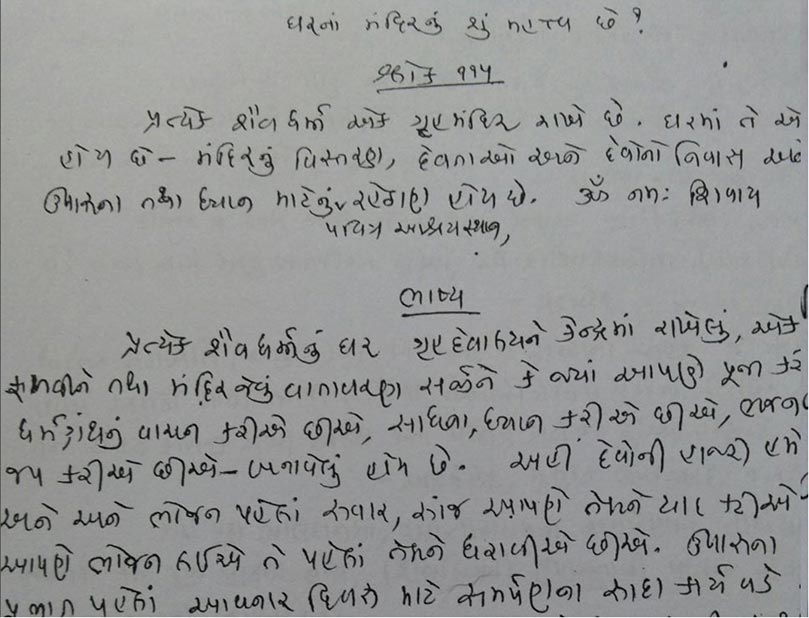 ઘરનાં મંદિરનું શું મહત્ત્વ છે?
શ્લોક ૧૧૫
પ્રત્યેક શૈવ ધર્મી એક ગૃહમંદિર રાખે છે. ઘરમાં તે એ
હોય છે – મંદિરનું વિસ્તરણ, દેવતાઓ અને દેવોનો નિવાસ અને
ઉપાસના તથા ધ્યાન માટેનું રહેઠાણ હોય છે. ૐ નમઃ શિવાય
પવિત્ર આશ્રયસ્થાન,
ભાષ્ય
પ્રત્યેક શૈવ ધર્મીનું ઘર ગૃહદેવાલયને કેન્દ્રમાં રાખેલું, એક
તથા મંદિર જેવું વાતાવરણ સર્જીને કે જ્યાં આપણે પૂજા કરી
ધર્મગ્રંથનું વાચન કરીએ છીએ, સાધના, ધ્યાન કરીએ છીએ, ભજન
જપ કરીએ છીએ – બનાવેલું હોય છે. અહીં દેવોની હાજરી હંમે
અને અને ભોજન પહેલાં સવાર, સાંજ આપણે તેમને યાદ કરીએ
આપણે ભોજન લઈએ તે પહેલાં તેમને ધરાવીએ છીએ. ઉપાસના
પહેલાં આવનાર દિવસ માટે સમર્પણના સાદા કાર્ય વડે